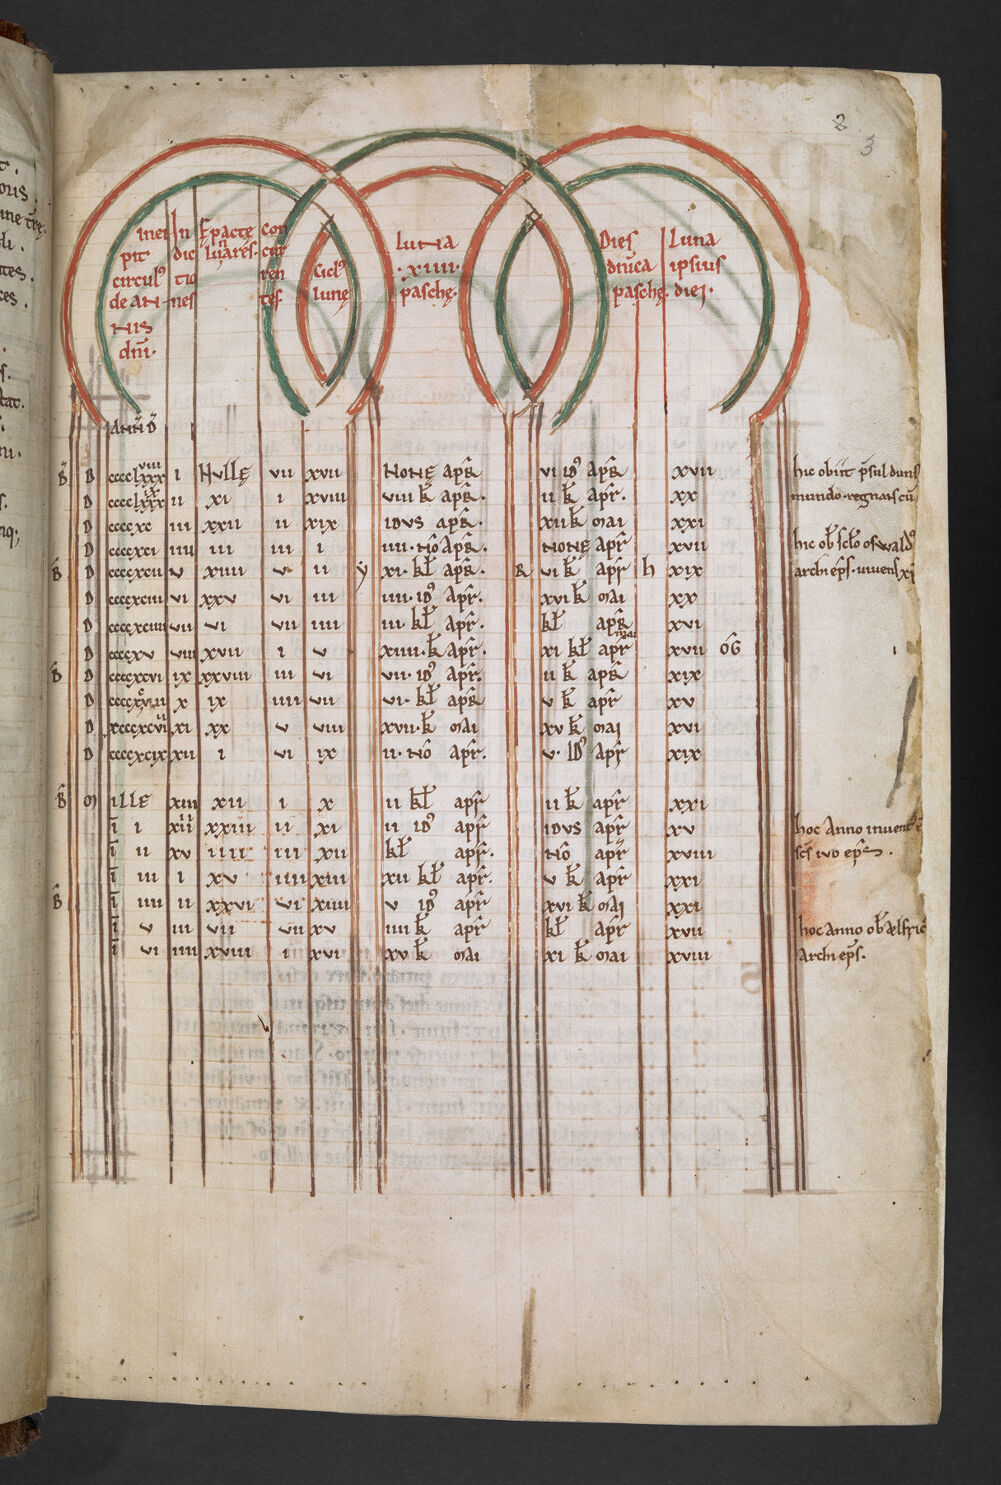 2
3
inci In Epacte con
pit dic lunares. cur
circul' tio ren Cicl' luna Dies Luna
de an nes tes. lune .xiiii. dnica ipsius
nis pasche. pasche. diei.
dni.
Anni D
B D cccclxxxviii i Nulle vii xvii None apr vi id apr xvii hic obiit psul duns
D cccclxxxix ii xi i xviii viii k apr. ii k apr. xx mundo. regnans cu
D ccccxc iii xxii ii xix idus apr. xii k mai xxi
D ccccxci iiii iii iii i iiii. no apr. None apr xvii hic ob scs oswald'
B D ccccxcii v xiiii v ii y xi. kl apr. R vi k apr h xix archi eps. vivens xi
D ccccxciii vi xxv vi iii iiii. id apr. xvi k mai xx
D ccccxciiii vii vi vii iiii iii. kl apr. kl apr xvi
D ccccxv viii xvii i v xiiii. k apr. xi kl apr mai xvii OG
B D ccccxcvi ix xxviii iii vi vii. id apr. ii k apr xix
D x ix iiii vii vi. kl apr v k apr xv
D xi xx v viii xvii. k mai xv k mai xvi
D ccccxcix xii i vi ix ii. no apr. v. id apr xix
B M ille xiii xii i x ii kl apr ii k apr xxi
i i xiiii xxiii ii xi ii id apr idus apr xv hoc Anno invent' e
i ii xv iiii iii xii kl apr. No apr xviii scs ivo eps.
i iii i xv iiii xiii xii kl apr. v k apr xxi
B i iiii ii xxvi vi xiiii v id apr xvi k mai xxi
i v iii vii vii xv iiii k apr kl apr xvii hoc anno ob ælfric'
i vi iiii xviii i xvi xv k mai xi k mai xviii archi eps.